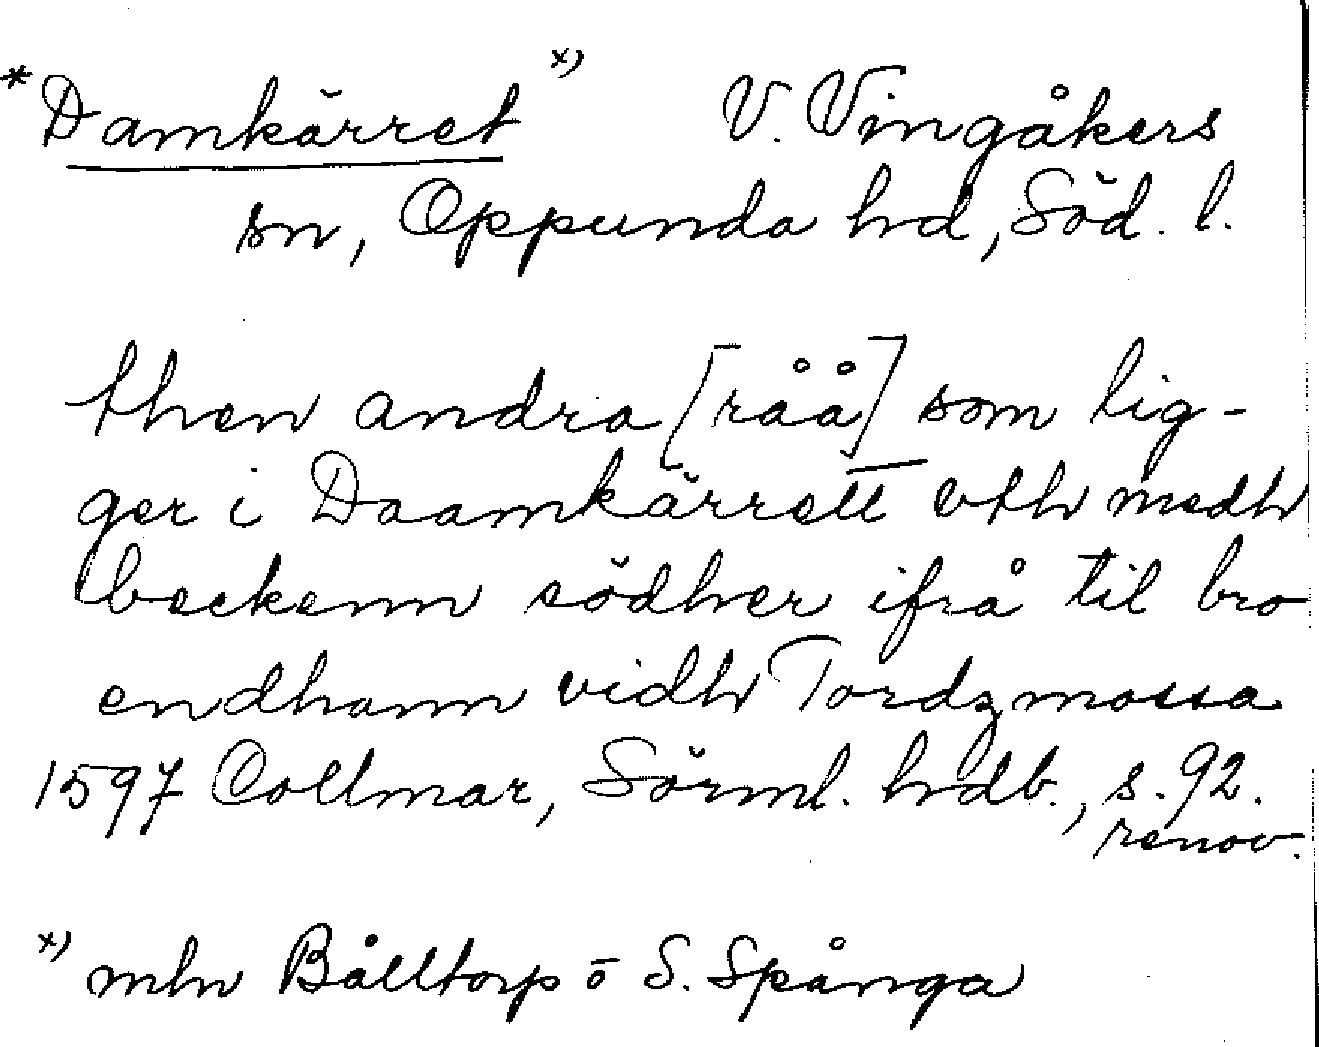 *Damkärret x) V. Vingåkers
sn, Oppunda hd, Söd. l.
then andra [råå] som lig-
ger i Daamkärrett vth medh
beckenn södher ifrå til bro
endhann vidh Tordzmossa
1597 Collmar, Sörml. hdb., s. 92.
renov.
x) mln Bålltorp o S. Spånga